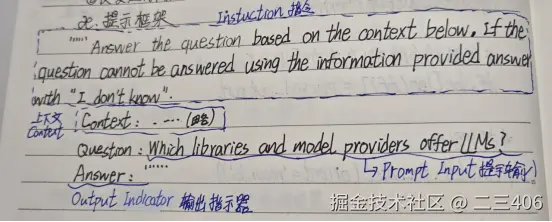 *. 提示框架 Instuction 指令
"""Answer the question based on the context below. If the
question cannot be answered using the information provided answer
with "I don't know".
上下文 Context: .... (略)
Context
Question: Which libraries and model providers offer LLMs?
Answer: """ → Prompt Input 提示输入
Output Indicator 输出指示器
掘金技术社区 @ 二三406